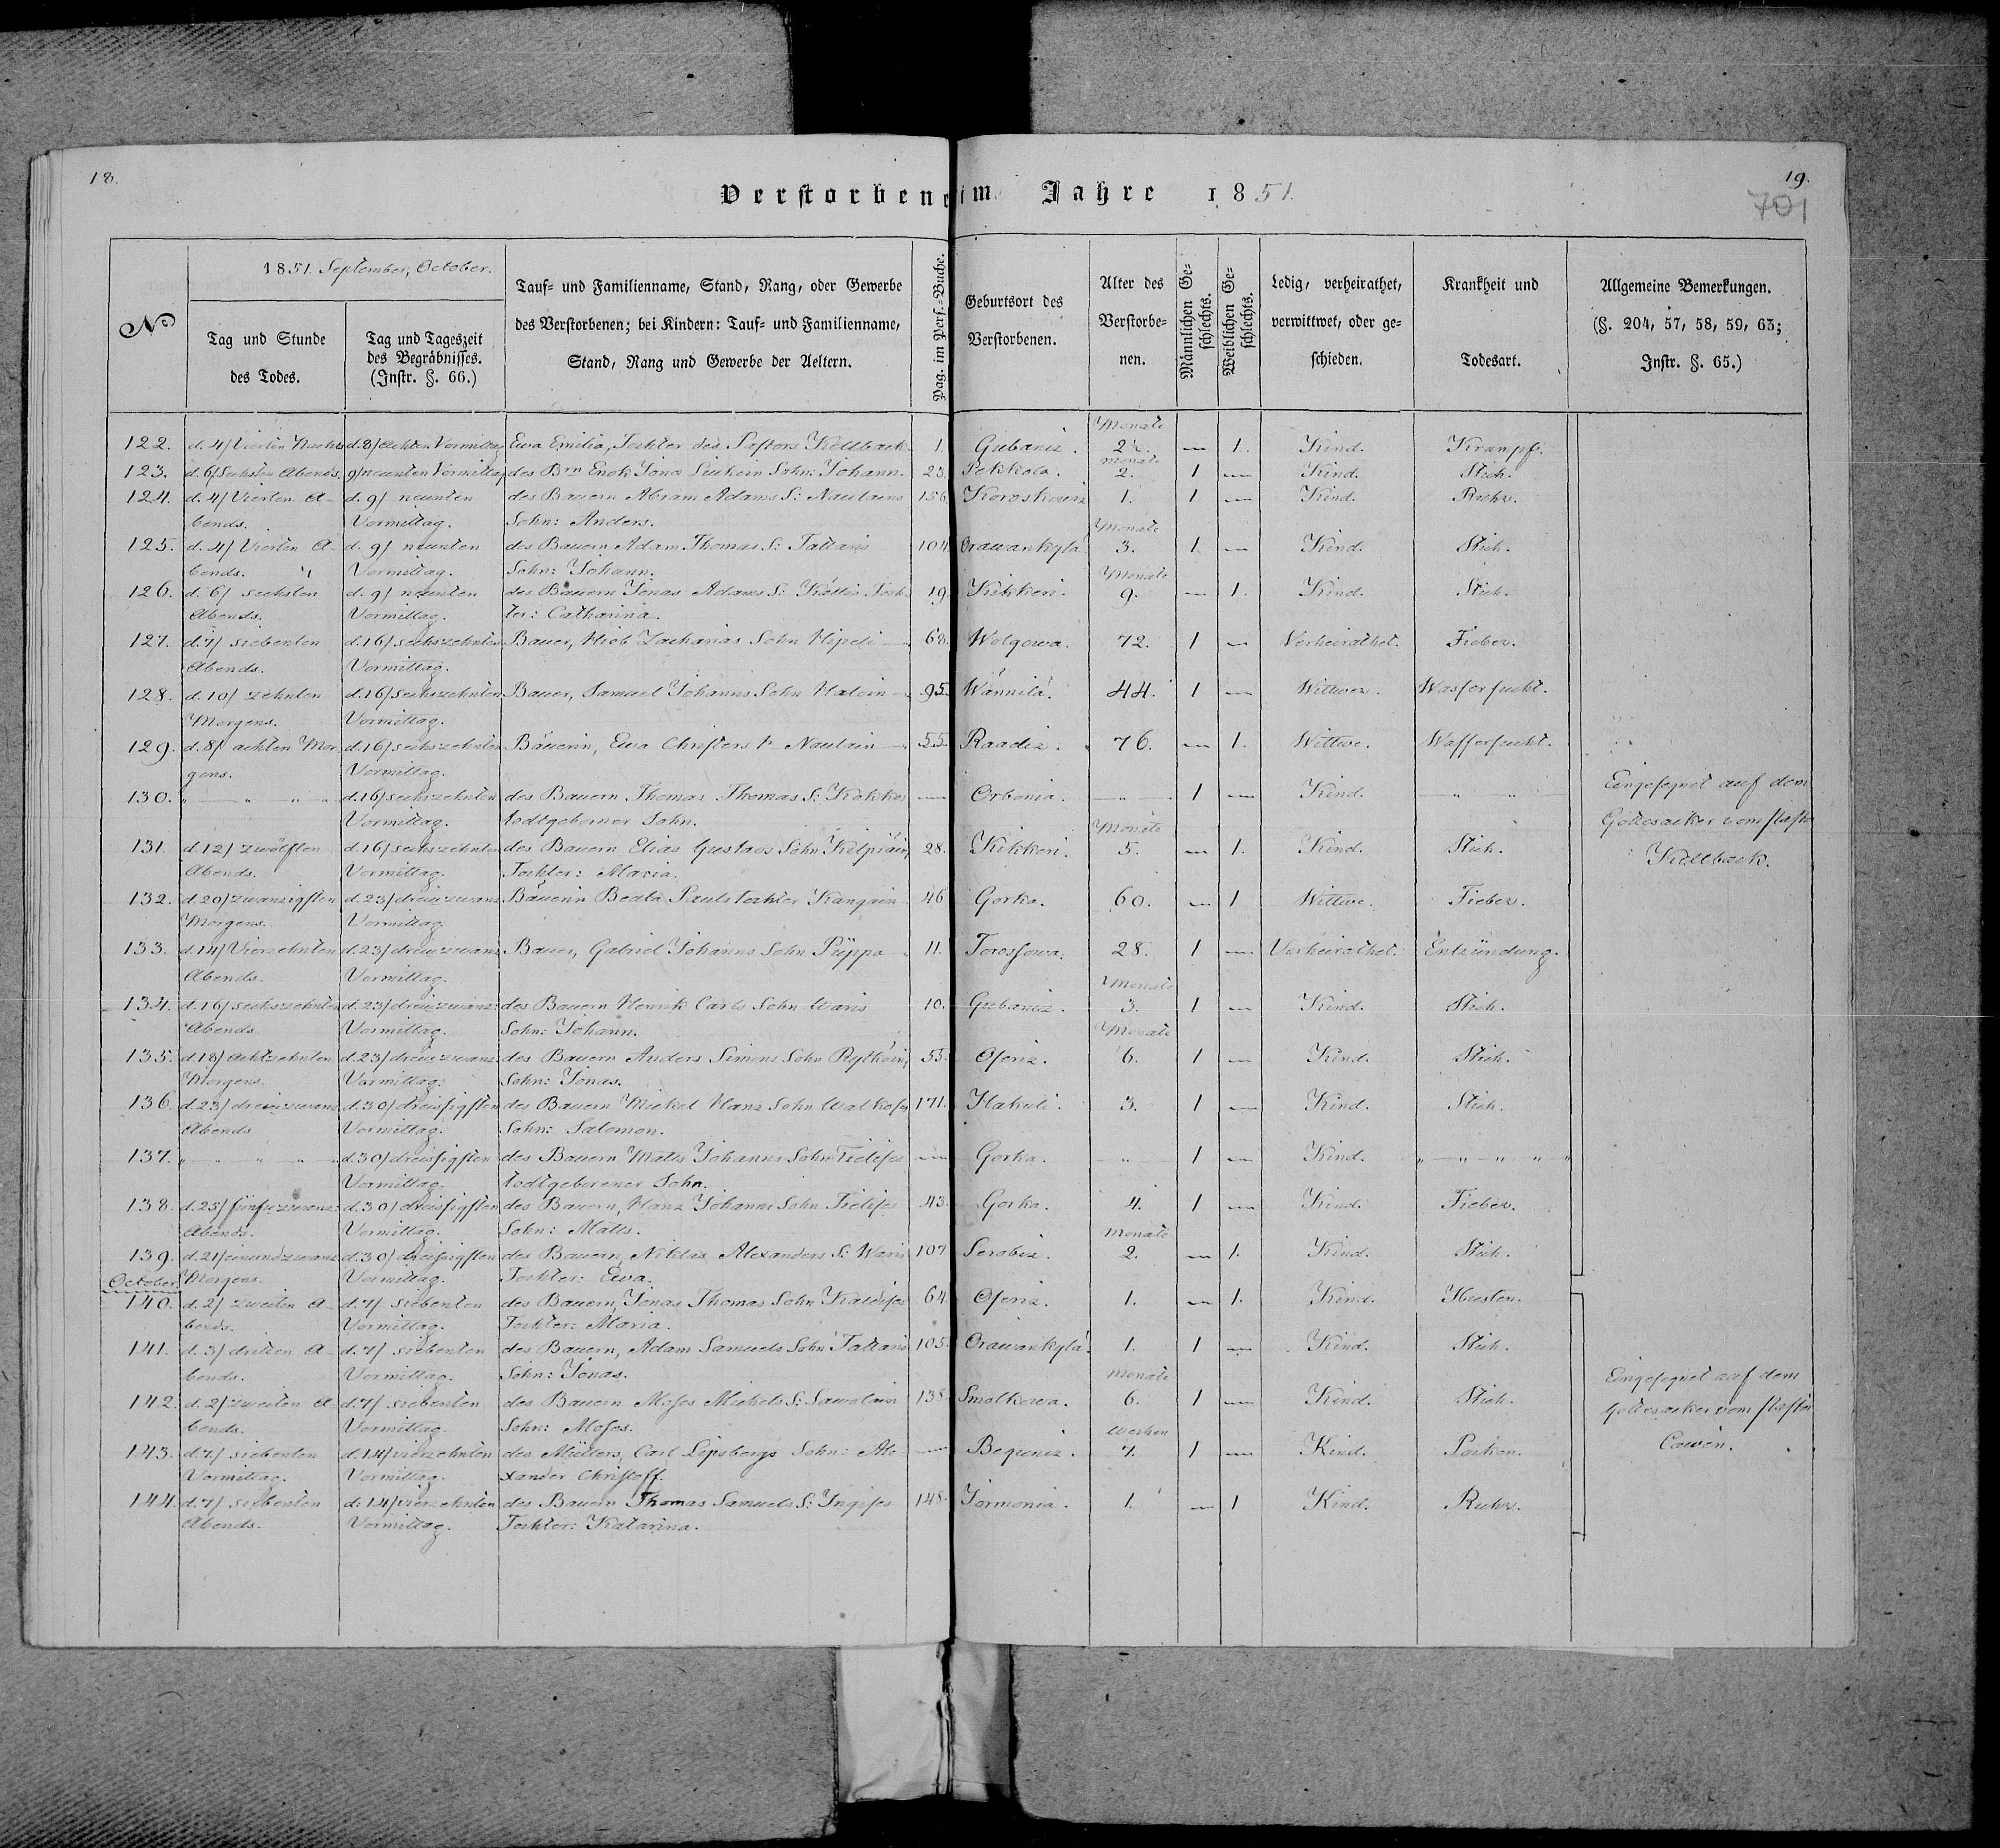 18.
19.
701
Verstorbene im Jahre 1851.
No
1851. September, October.
Tag und Stunde
des Todes.
Tag und Tageszeit
des Begräbnisses.
(Instr. §. 66.)
Tauf= und Familienname, Stand, Rang, oder Gewerbe
des Verstorbenen; bei Kindern: Tauf= und Familienname,
Stand, Rang und Gewerbe der Aeltern.
Pag. im Pers.=Buche.
Geburtsort des
Verstorbenen.
Alter des
Verstorbe=
nen.
Männlichen Ge=
schlechts.
Weiblichen Ge=
schlechts.
Ledig, verheirathet,
verwittwet, oder ge=
schieden.
Krankheit und
Todesart.
Allgemeine Bemerkungen.
(§. 204, 57, 58, 59, 63;
Instr. §. 65.)
Monate
122. d. 4/ Vierten Nachts d. 8/ achten Vormittag Ewa Emilia, Tochter des Pastors Kellback 1. Gubaniz. 2½. — 1. Kind. Krampf.
Monate
123. d. 6/ Sechsten Abends. 9/ neunten Vormittag des Brn Enok Jona Sohn: Johann. 23. Pekkola. 2. 1 — Kind. Stich.
124. d. 4/ Vierten A- d. 9/ neunten des Bauern Abram Adams S: Naulains 156. 1. 1 — Kind. Ruhr.
bends. Vormittag. Sohn: Anders.
Monate
125. d. 4/ Vierten A- d. 9/ neunten des Bauern Adam Thomas S: Tattaris 104. Orawankylä 3. 1. — Kind. Stich.
bends. Vormittag. Sohn: Johann.
Monate
126. d. 6/ sechsten d. 9/ neunten des Bauern Jonas Adams S: Toch- 19. Kikkeri. 9. — 1. Kind. Stich.
Abends. Vormittag. ter: Catharina.
127. d. 7/ siebenten d. 16/ sechszehnten Bauer, Hiob Zacharias Sohn Hipeli — 68. Wolgowa. 72. 1 — Verheirathet. Fieber.
Abends. Vormittag.
128. d. 10/ zehnten d. 16/ sechszehnten Bauer, Samuel Johanns Sohn — 95. Wännilä. 44. 1 — Wittwer. Wassersucht.
Morgens. Vormittag.
129. d. 8/ achten Mor- d. 16/ sechszehnten Bäuerin, Ewa Christers t. Naulain — 55. Raadiz. 76. — 1. Wittwe. Wassersucht.
gens. Vormittag.
130. „ — „ „ „ d. 16/ sechszehnten des Bauern Thomas Thomas S: Kokkos — Orbonia. — „ — 1 — Kind. — „ — „ — Eingesegnet auf dem
Vormittag. todtgeborner Sohn. Gottesacker vom Pastor
Monate
131. d. 12/ zwölften d. 16/ sechszehnten des Bauern Elias Gustavs Sohn Kilpiäin, 28. Kikkeri. 5. — 1. Kind. Stich. Kellback.
Abends. Vormittag. Tochter: Maria.
132. d. 20/ zwanzigsten d. 23/ dreiuzwanz Bäuerin Beata Pauls tochter Kangain 46 Gorka. 60. — 1 Wittwe. Fieber.
Morgens. Vormittag.
133. d. 14/ Vierzehnten d. 23/ dreiuzwanz Bauer, Gabriel Johanns Sohn Püppo 11. Torossowa. 28. 1 — Verheirathet. Entzündung.
Abends. Vormittag.
Monate
134. d. 16/ sechszehnten d. 23/ dreiuzwanz: des Bauern Henrik Carls Sohn Waris 10. Gubaniz. 3. 1 — Kind. Stich.
Abends. Vormittag. Sohn: Johann.
Monate
135. d. 18/ achtzehnten d. 23/ dreiuzwanz: des Bauern Anders Simons Sohn 55. Oseriz. 6. 1 — Kind. Stich.
Morgens. Vormittag. Sohn: Jonas.
136. d. 23/ dreiuzwanz d. 30/ dreissigsten des Bauern Mickel Hans Sohn 171. Hakuli. 3. 1 — Kind. Stich.
Abends Vormittag. Sohn: Salomon.
137. „ — „ — „ — „ d. 30/ dreissigsten des Bauern Matts Johanns Sohn — Gorka. „ 1 — Kind. „ — „ — „ — „
Vormittag. todtgeborener Sohn.
138. d. 25/ fünfuzwanz: d. 30/ dreissigsten des Bauern, Hans Johanns Sohn 43. Gorka. 4. 1 — Kind. Fieber.
Abends. Vormittag. Sohn: Matts.
Monate
139. d. 21/ einundzwanz d. 30/ dreissigsten des Bauern, Niklas Alexanders S: Waris 107. Serobiz. 2. — 1. Kind. Stich.
Morgens. Vormittag. Tochter: Ewa.
October.
140. d. 2/ zweiten A- d. 7/ siebenten des Bauern, Jonas Thomas Sohn 64. Oseriz. 1. — 1. Kind. Husten.
bends. Vormittag. Tochter: Maria.
141. d. 3/ dritten A- d. 7/ siebenten des Bauern, Adam Samuels Sohn Tattaris 105. Orawankylä. 1. 1 — Kind. Stich.
bends. Vormittag. Sohn: Jonas. Eingesegnet auf dem
Monate
142. d. 2/ zweiten A- d. 7/ siebenten des Bauern Moses Mickels S: Sawolain 138. Smolkowa. 6. 1 — Kind. Stich. Gottesacker vom Pastor
bends. Vormittag. Sohn: Moses.
Wochen
143. d. 7/ siebenten d. 14/ vierzehnten des Müllers, Carl Lepsbergs Sohn: Ale- — Beguniz. 7. 1 — Kind. Pocken. Cawén.
Vormittag. Vormittag. xander Christoff.
144. d. 7/ siebenten d: 14/ vierzehnten des Bauern Thomas Samuels S: 148. Jormonia. 1. — 1 Kind. Ruhr.
Abends. Vormittag. Tochter: Katarina.